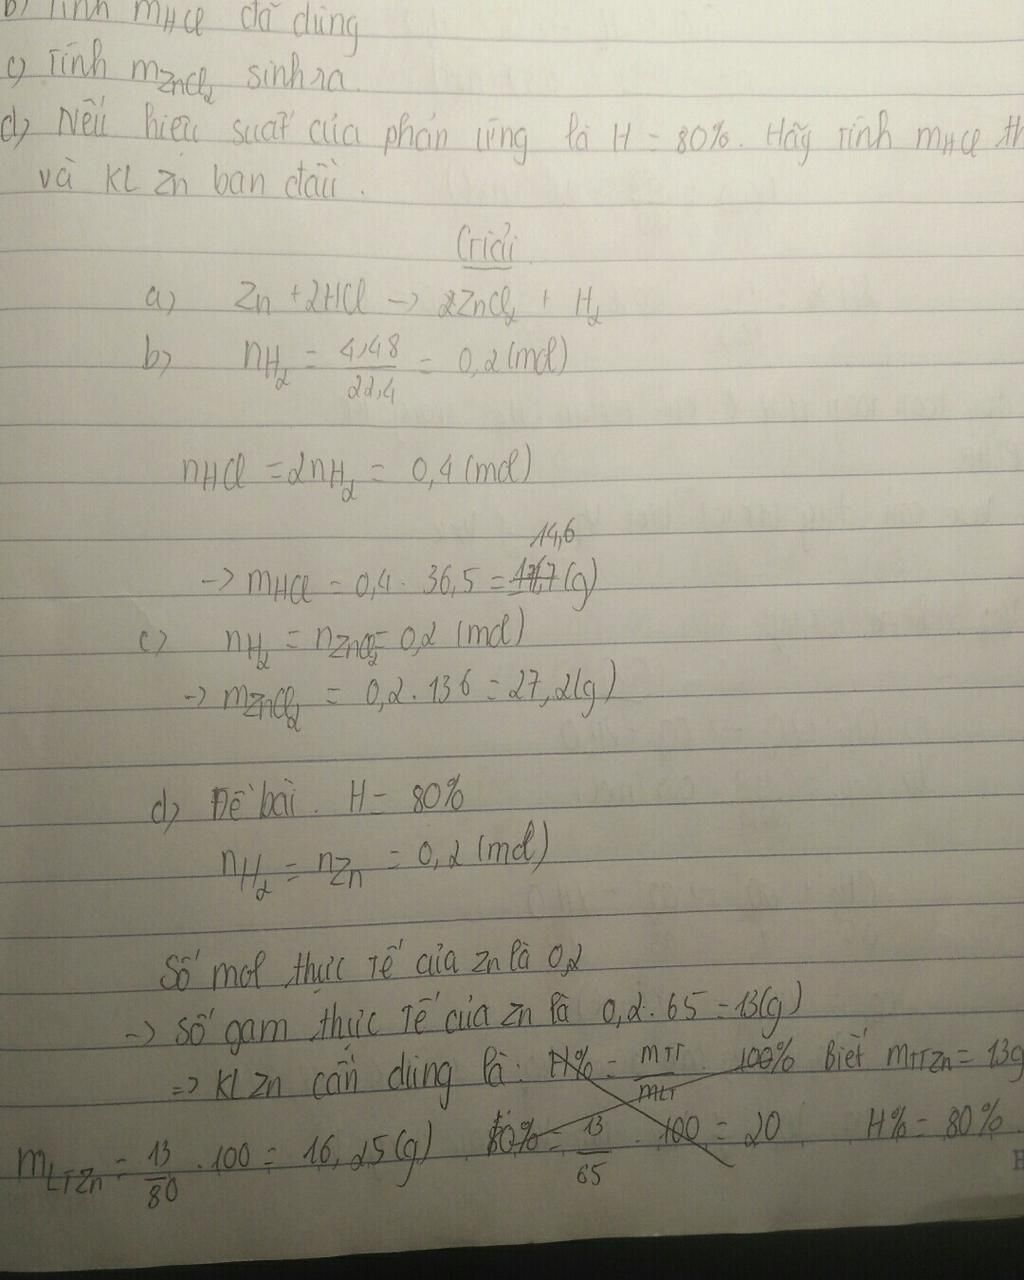 b) Tính mHCl đã dùng
c) Tính mZnCl₂ sinh ra.
d) Nếu hiệu suất của phản ứng là H = 80%. Hãy tính mHCl th
và KL Zn ban đầu.
Giải
a) Zn + 2HCl -> ZnCl₂ + H₂
b) nH₂ = 4,48/22,4 = 0,2 (mol)
nHCl = 2nH₂ = 0,4 (mol)
14,6
-> mHCl = 0,4. 36,5 = (g)
c) nH₂ = nZnCl₂ = 0,2 (mol)
-> mZnCl₂ = 0,2. 136 = 27,2(g)
d) Đề bài. H = 80%
nH₂ = nZn = 0,2 (mol)
Số mol thực tế của Zn là 0,2
-> Số gam thực tế của Zn là 0,2. 65 = 13(g)
=> KL Zn cần dùng là: H% = mTT/mLT . 100% Biết mTTZn = 13g
mLTZn = 13/80 . 100 = 16,25(g) 80% = 13/65 . 100 = 20 H% = 80%